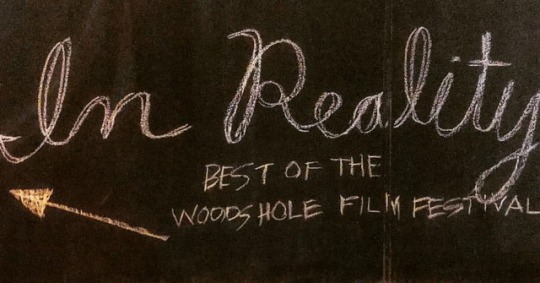 In Reality
BEST OF THE
WOODS HOLE FILM FESTIVAL